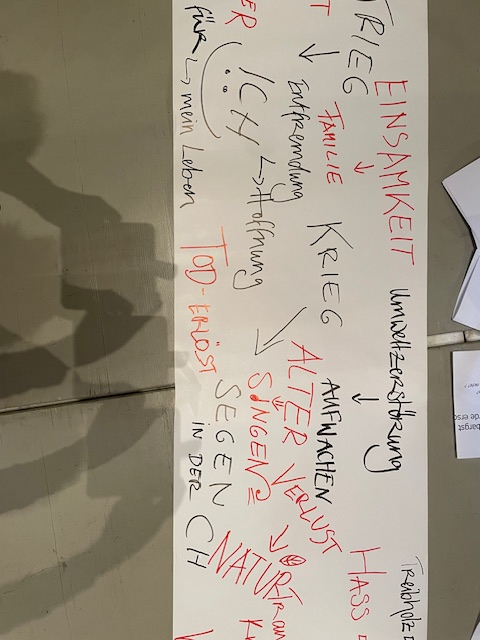 Treibholz
EINSAMKEIT ↓ Umweltzerstörung ↓
HASS
FAMILIE KRIEG AUFWACHEN
Entfremdung ALTER VERLUST
ICH ↳ Hoffnung SINGEN?
SEGEN NATUR
für ↳ mein Leben TOD-ERLÖST IN DER CH